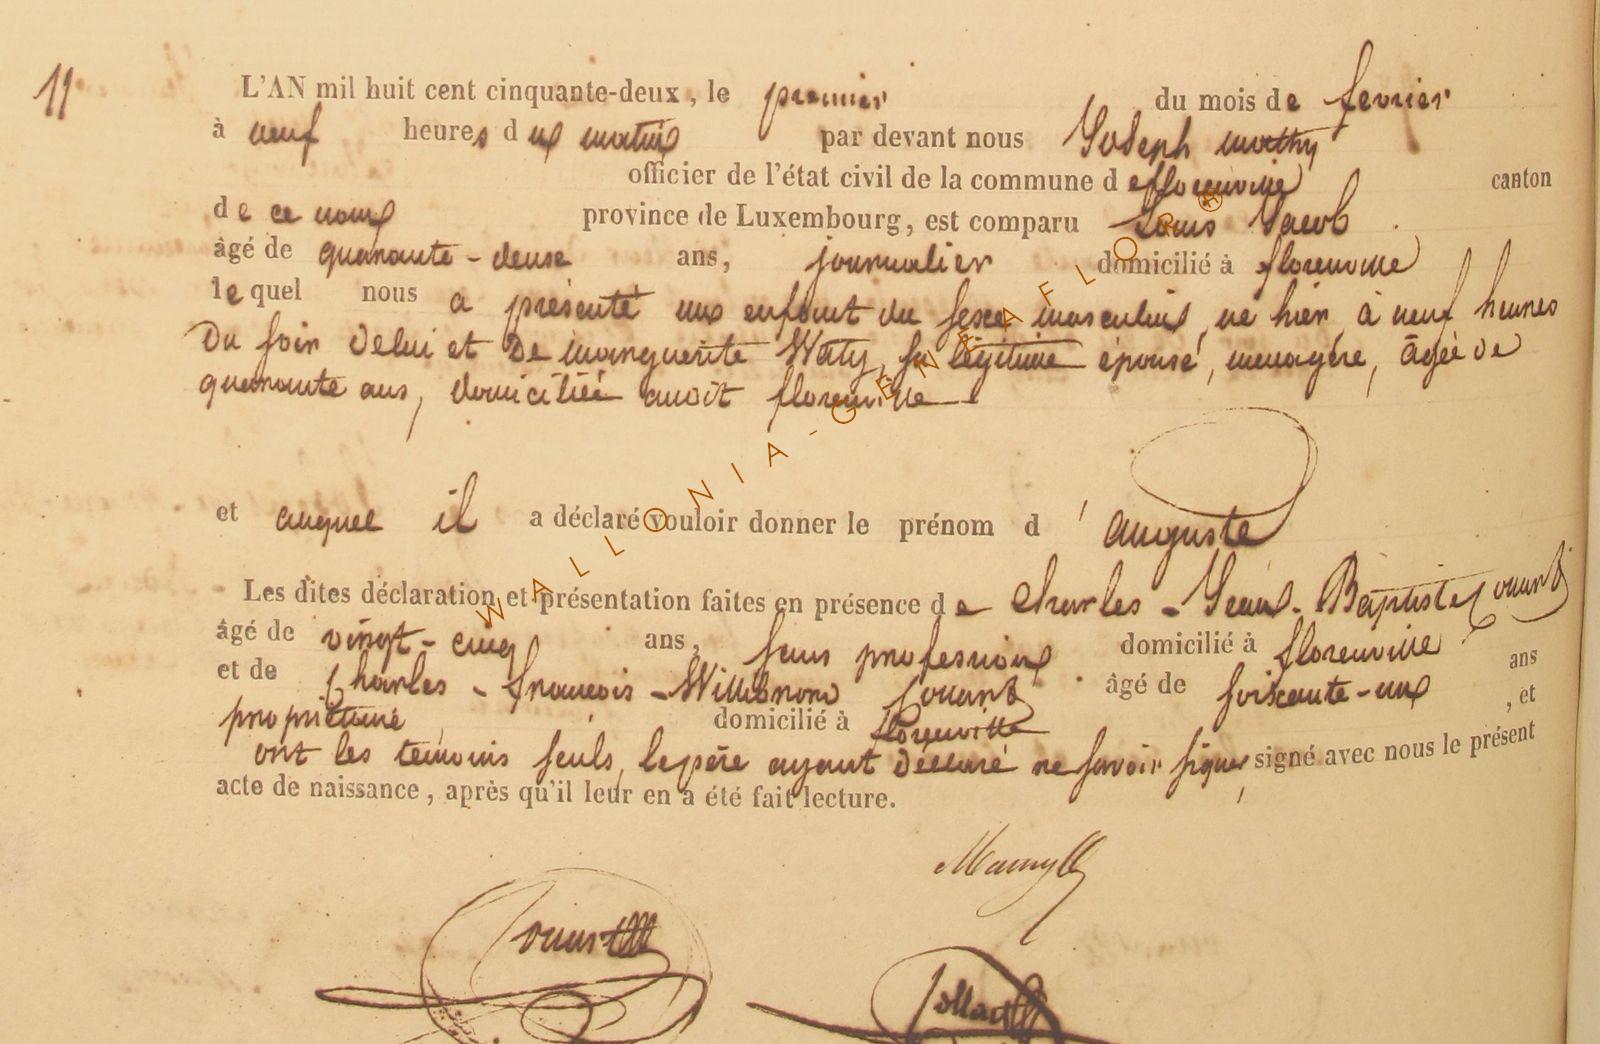 11
L'AN mil huit cent cinquante-deux, le premier du mois de fevrier
à neuf heures du matin par devant nous Joseph mathy
officier de l'état civil de la commune de florenville canton
de ce nom province de Luxembourg, est comparu Louis Jacob
âgé de quarante-deuse ans, journalier domicilié à florenville
lequel nous a présenté un enfant du sexe masculin, né hier, à neuf heures
Du soir De lui et De marguerite Waty, sa légitime épouse, menagére, âgée de
quarante ans, domiciliée audit florenville
et auquel il a déclaré vouloir donner le prénom d'auguste
Les dites déclaration et présentation faites en présence de Charles-Jean-Baptiste
âgé de vingt-cinq ans, sans profession domicilié à florenville
et de Charles-francois- âgé de soixante-un ans
propriétaire domicilié à florenville, et
ont les témoins seuls, le père ayant Déclaré ne savoir signer, signé avec nous le présent
acte de naissance, après qu'il leur en a été fait lecture.
WALLONIA-GENEAFLORA